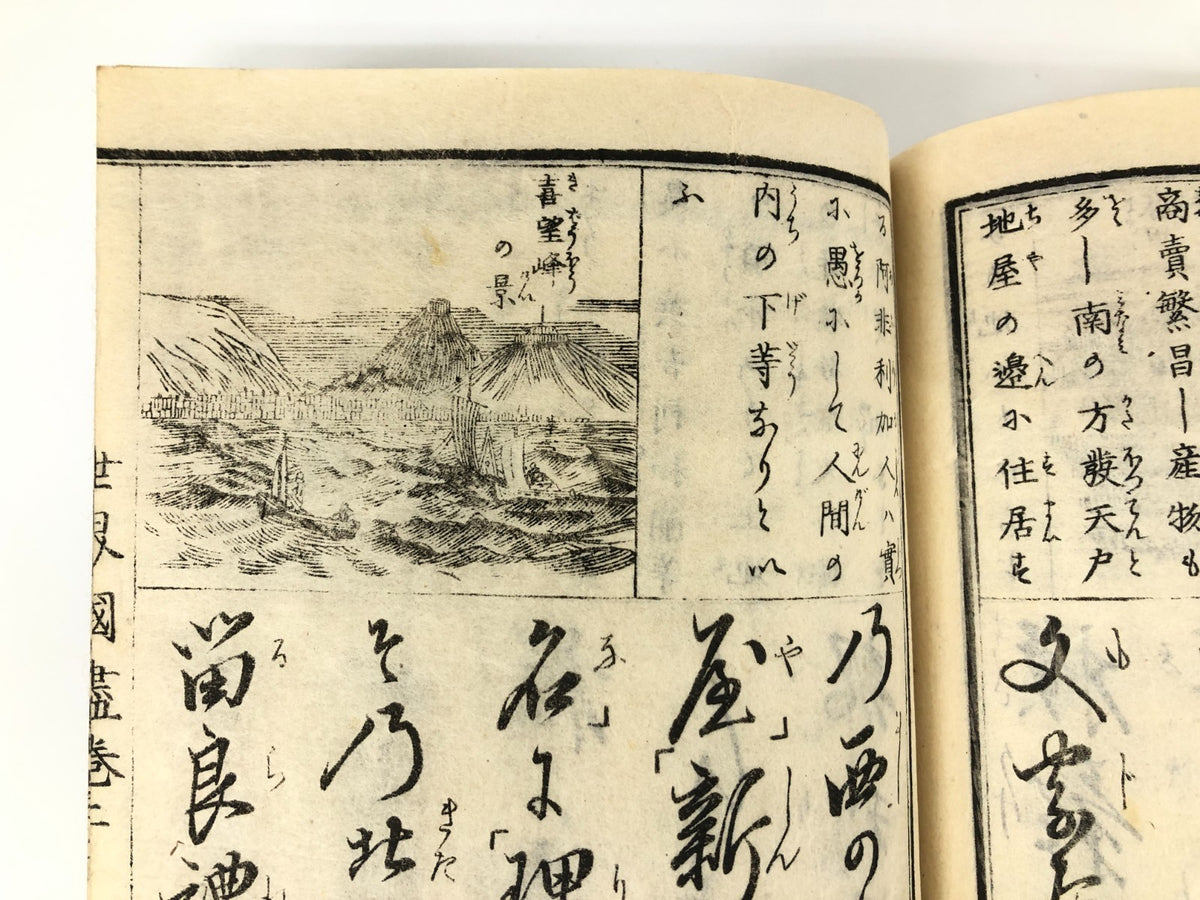 商賣繁昌し産物も
多し南の方發天戸
地屋の邉に住居す
文
る阿非利加人ハ實
に愚にして人間の
内の下等なりと以
ふ
喜望峰
の景
乃西の
屋」「新
名」に「理
その北
留良禮
世界國盡 巻二